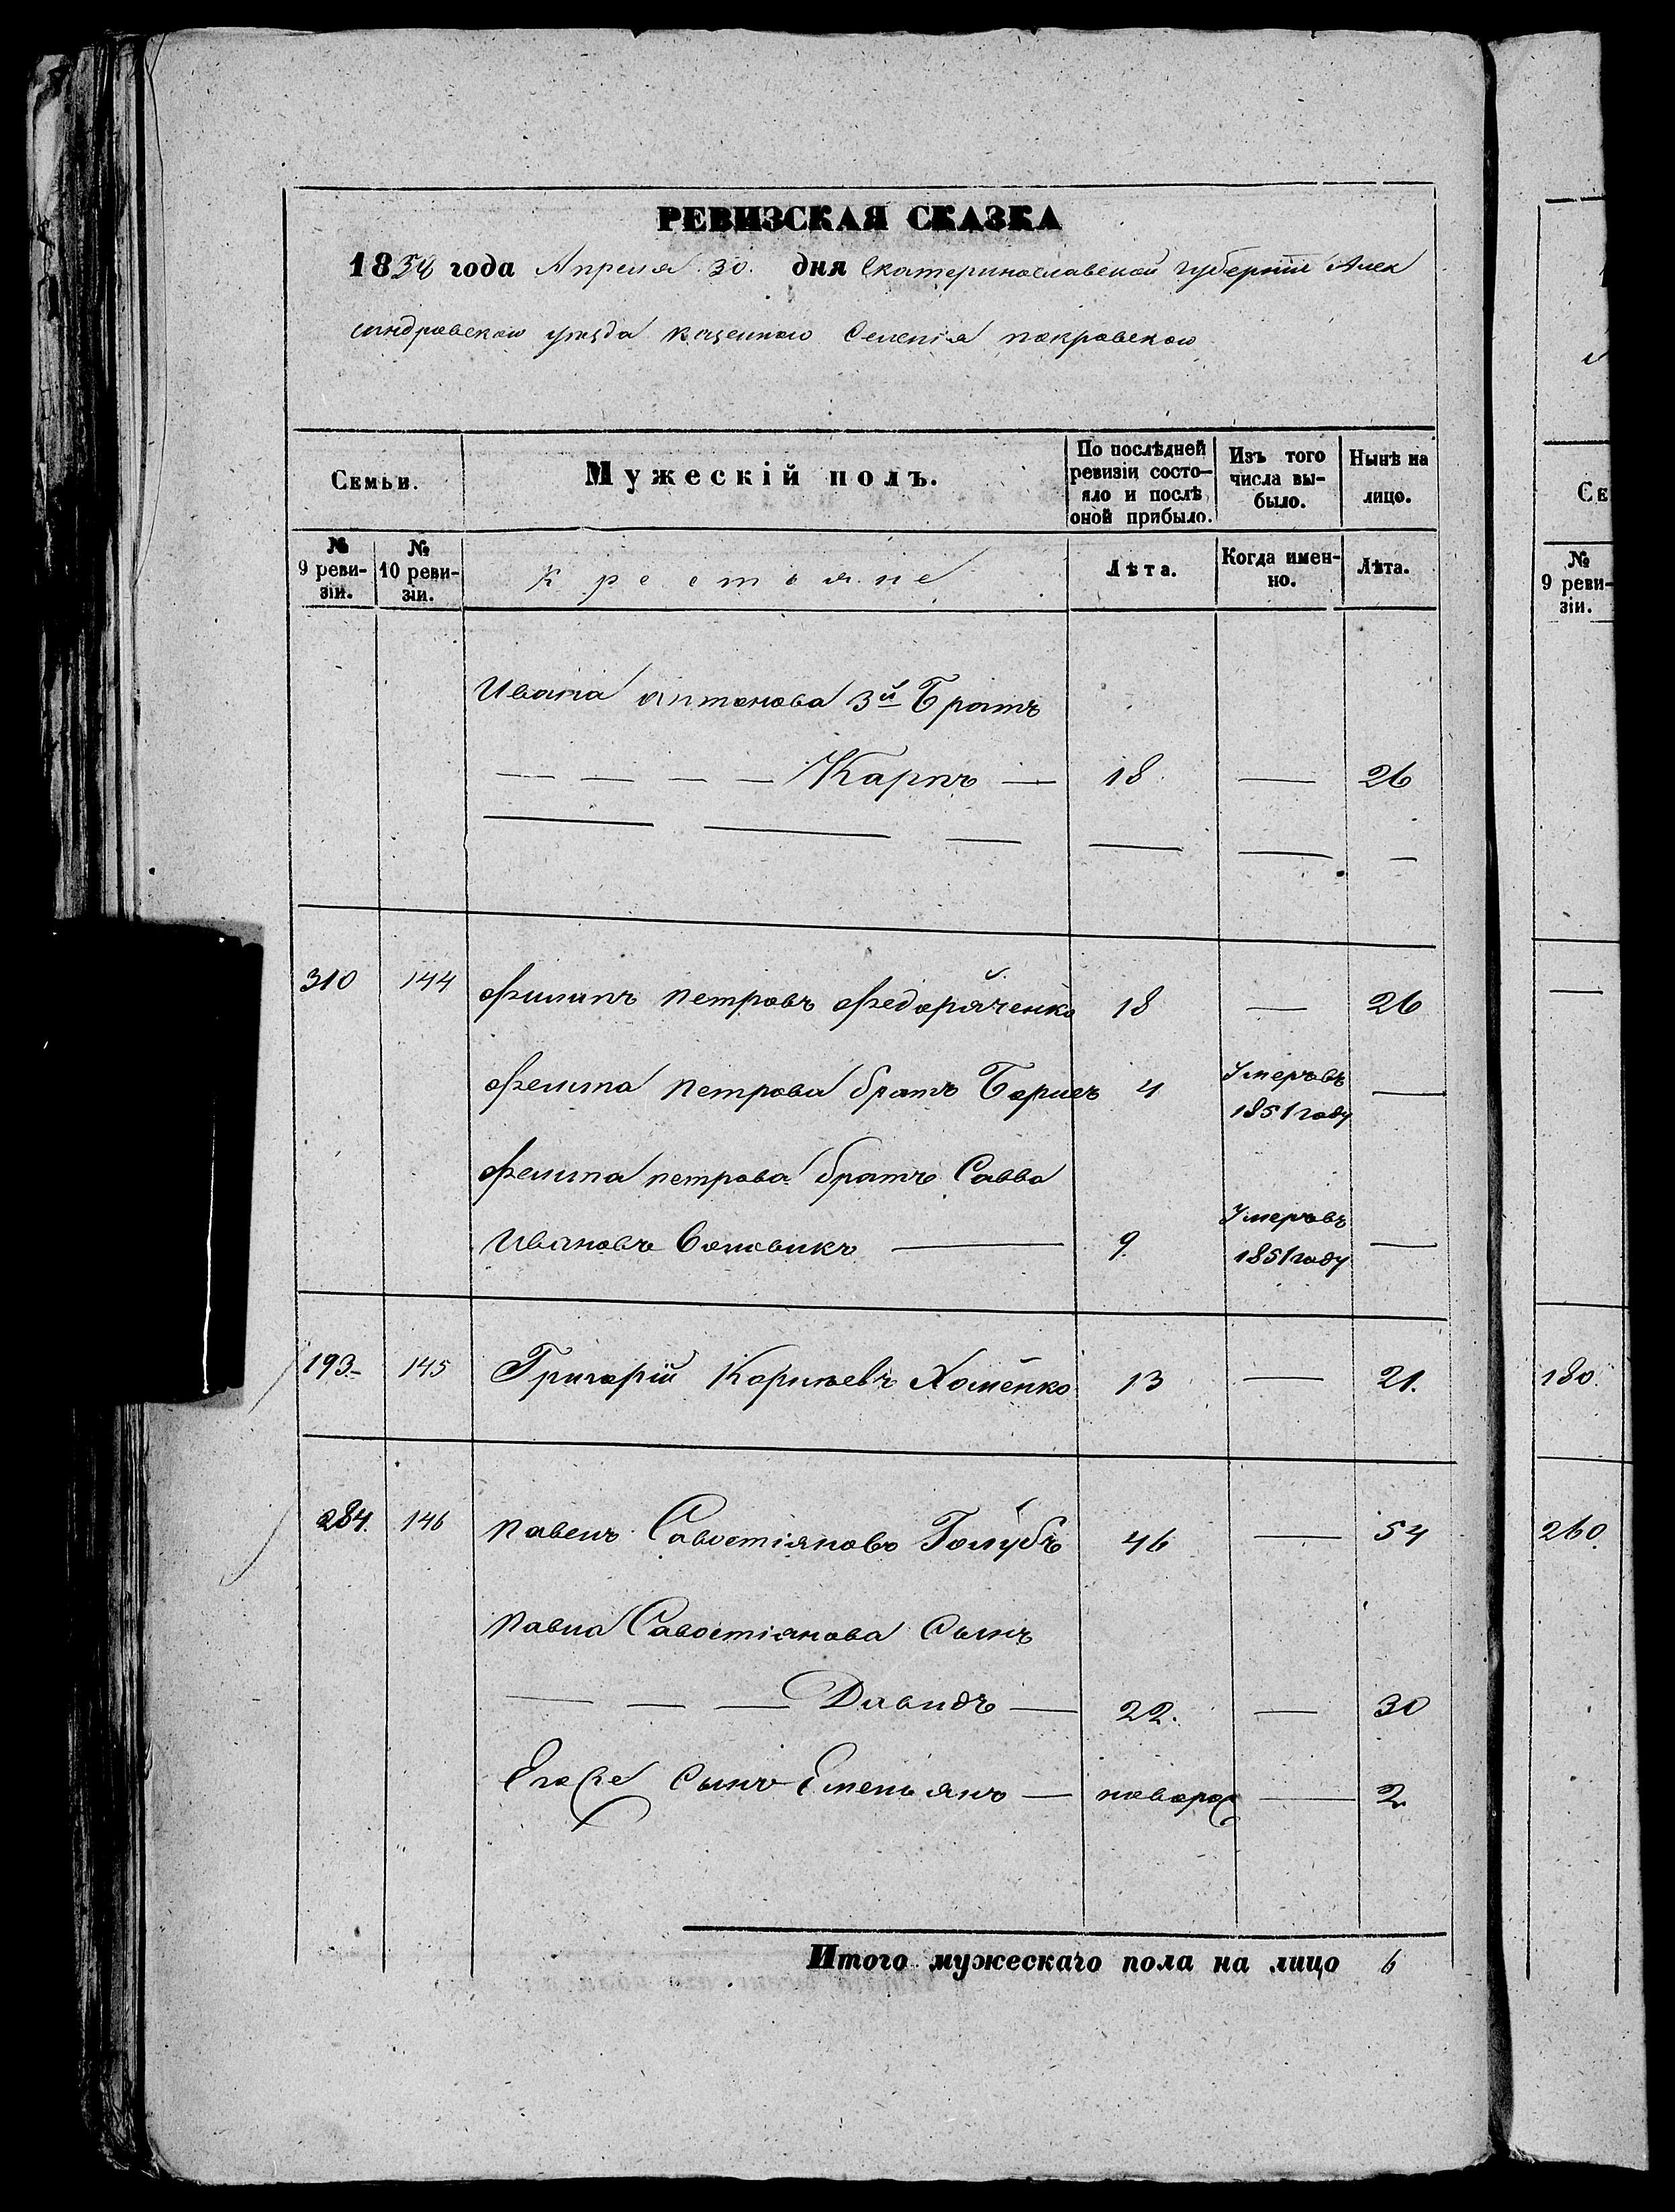 РЕВИЗСКАЯ СКАЗКА
1858 года Апреля 30. дня Екатеринославской губернии Алек
сандровскаго уезда казенного Селенія покровского
Семьи.
Мужескій полъ.
По послѣдней ревизіи состо-
яло и послѣ
оной прибыло.
Изъ того
числа вы-
было.
Нынѣ на
лицо.
№ 9 реви-
зіи.
№ 10 реви-
зіи.
Крестьяне
Лѣта.
Когда имен-
но.
Лѣта.
Ивана Антонова 3й Братъ
— — — — Карпъ — 18 — 26
310 144 Филипъ Петровъ Федоряченко 18 — 26
Филипа Петрова братъ Борисъ 4 Умеръ въ 1851 году —
Филипа петрова братъ Савва
Ивановъ 9. Умеръ въ 1851 году —
193 145 Григорій Корнѣевъ Хоменко 13 — 21.
284. 146 Павелъ Савостіяновъ Голубъ 46 — 54
Павла Савостіянова Сынъ
— — — Давидъ — 22. — 30
Его же Сынъ Емельянъ — новорож — 2
Итого мужескаго пола на лицо 6
Се
№
9 реви-
зіи.
180.
260.